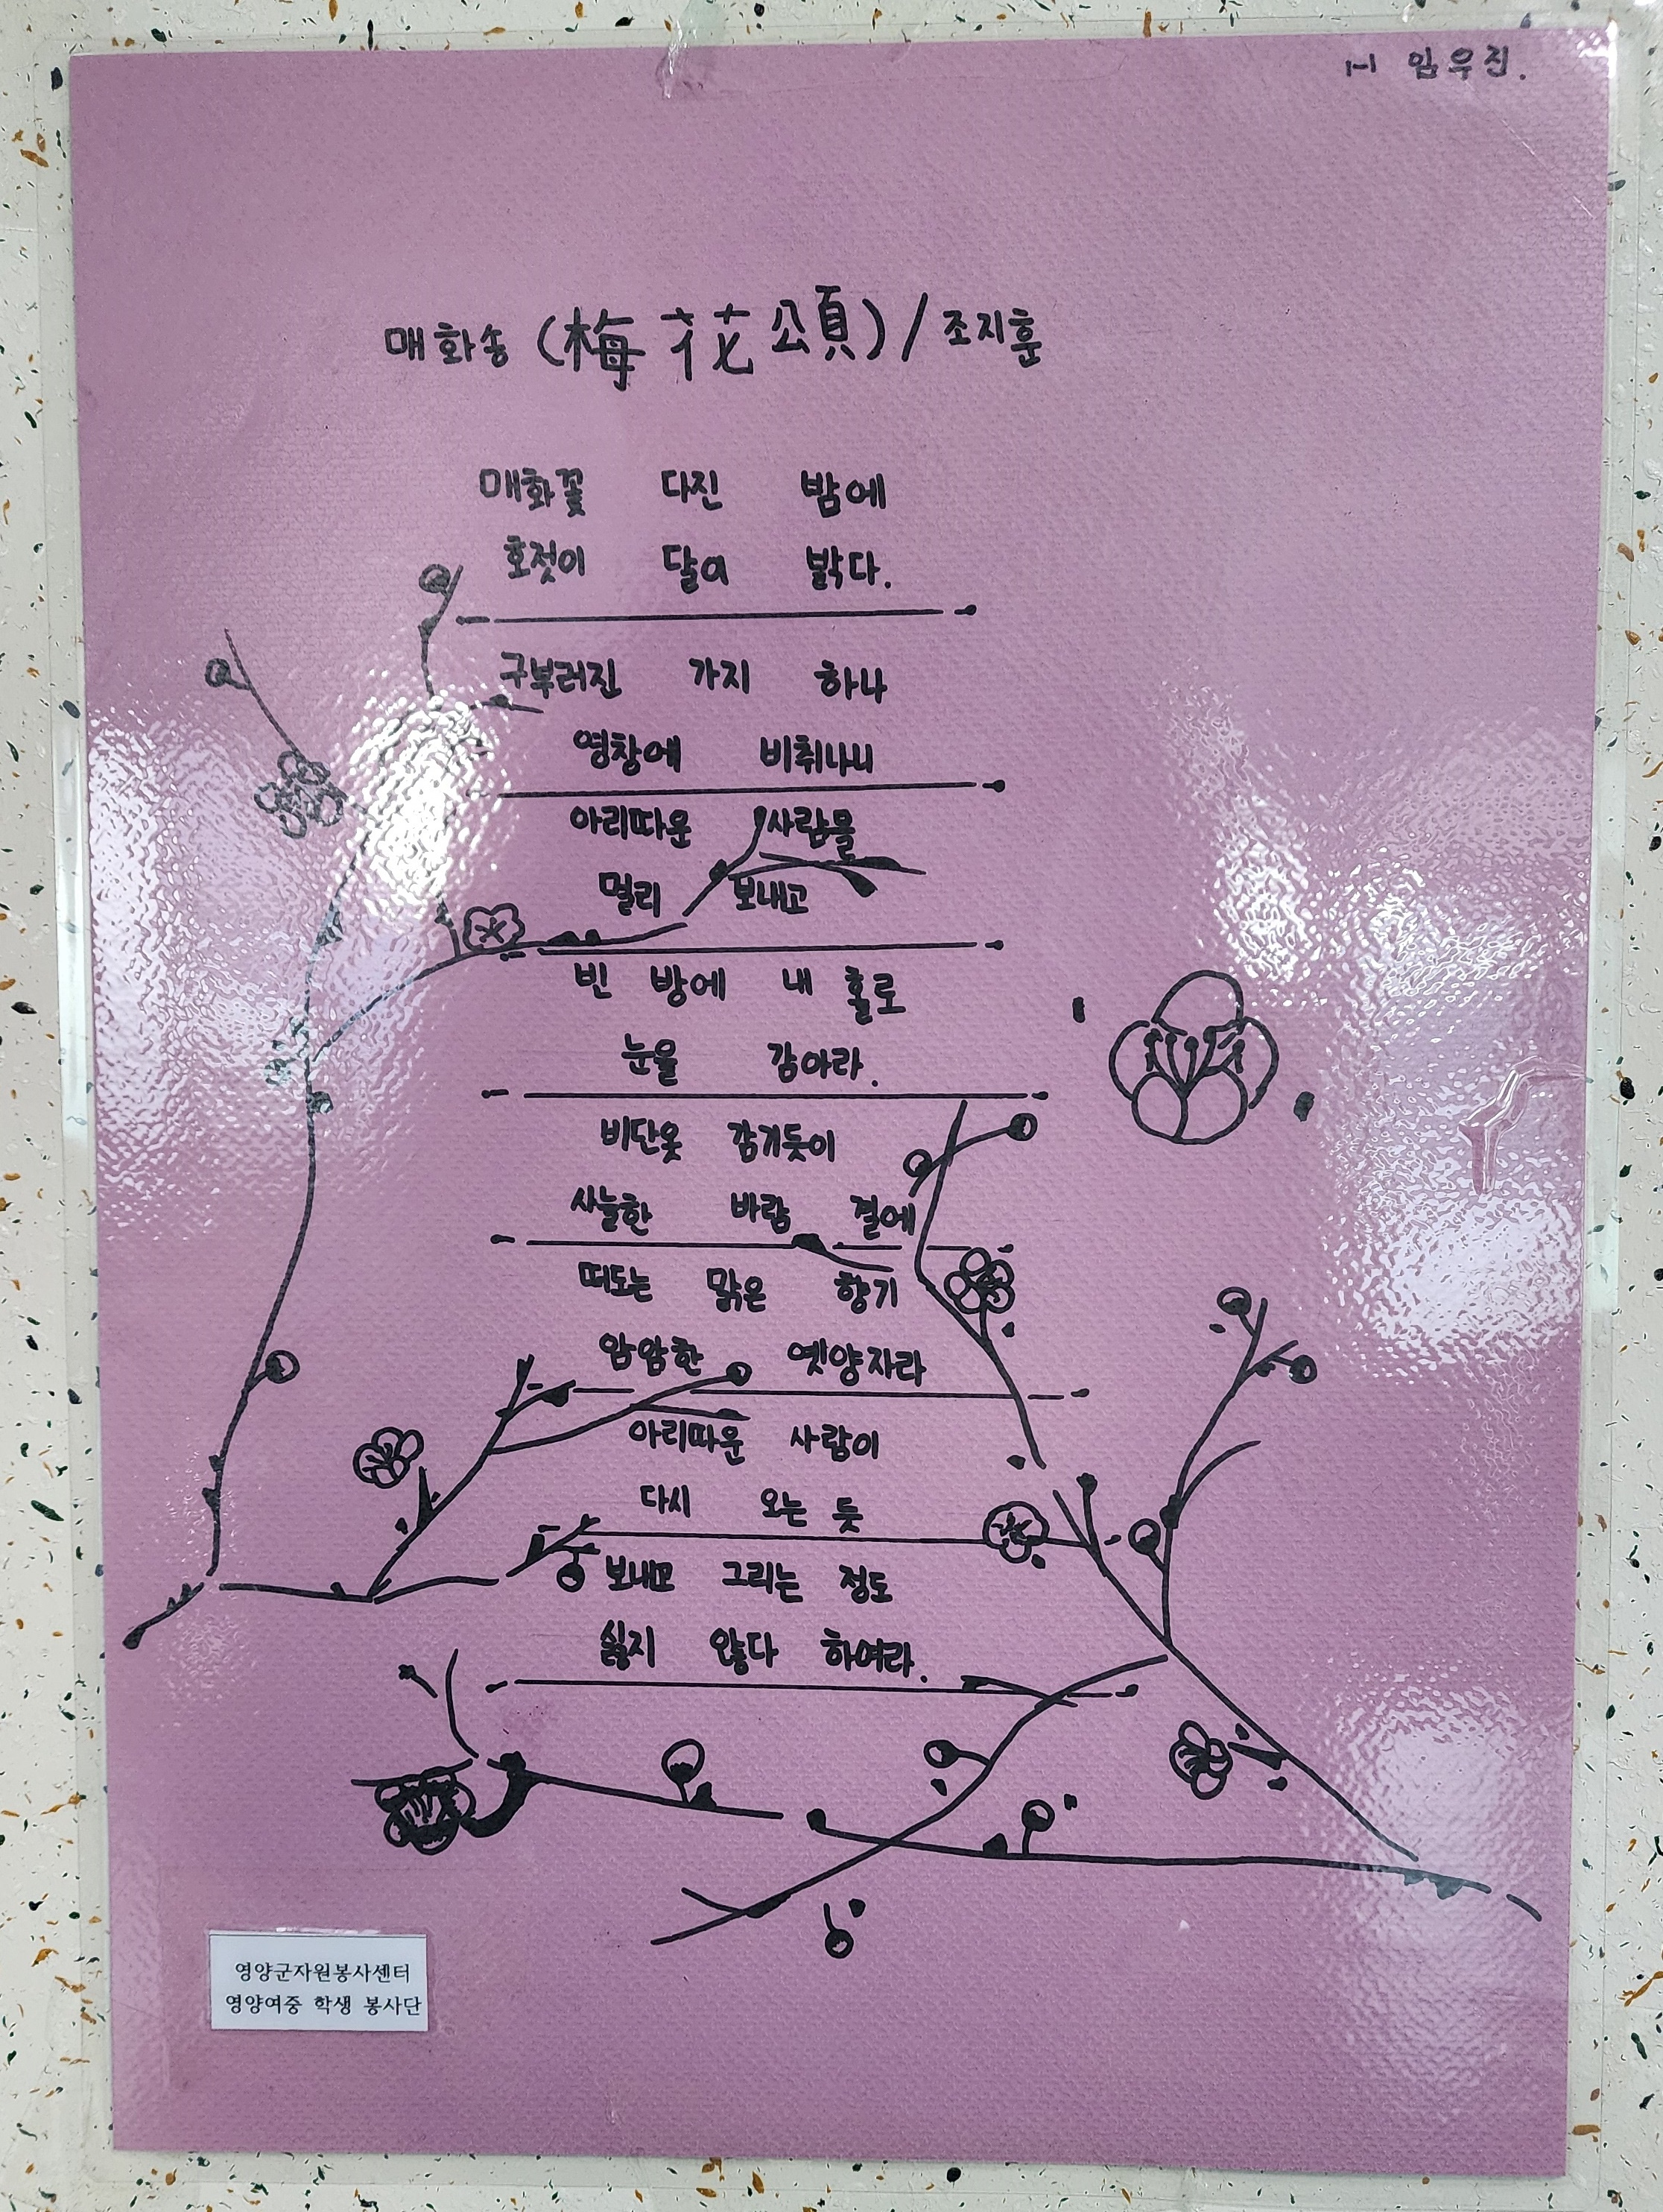 1-1 임우진.
매화송 (梅花頌) / 조지훈
매화꽃 다진 밤에
호젓이 달이 밝다.
구부러진 가지 하나
영창에 비취나니
아리따운 사람을
멀리 보내고
빈 방에 내 홀로
눈을 감아라.
비단옷 감기듯이
사늘한 바람 결에
떠도는 맑은 향기
암암한 옛양자라
아리따운 사람이
다시 오는 듯
보내고 그리는 정도
싫지 않다 하여라.
영양군자원봉사센터
영양여중 학생 봉사단